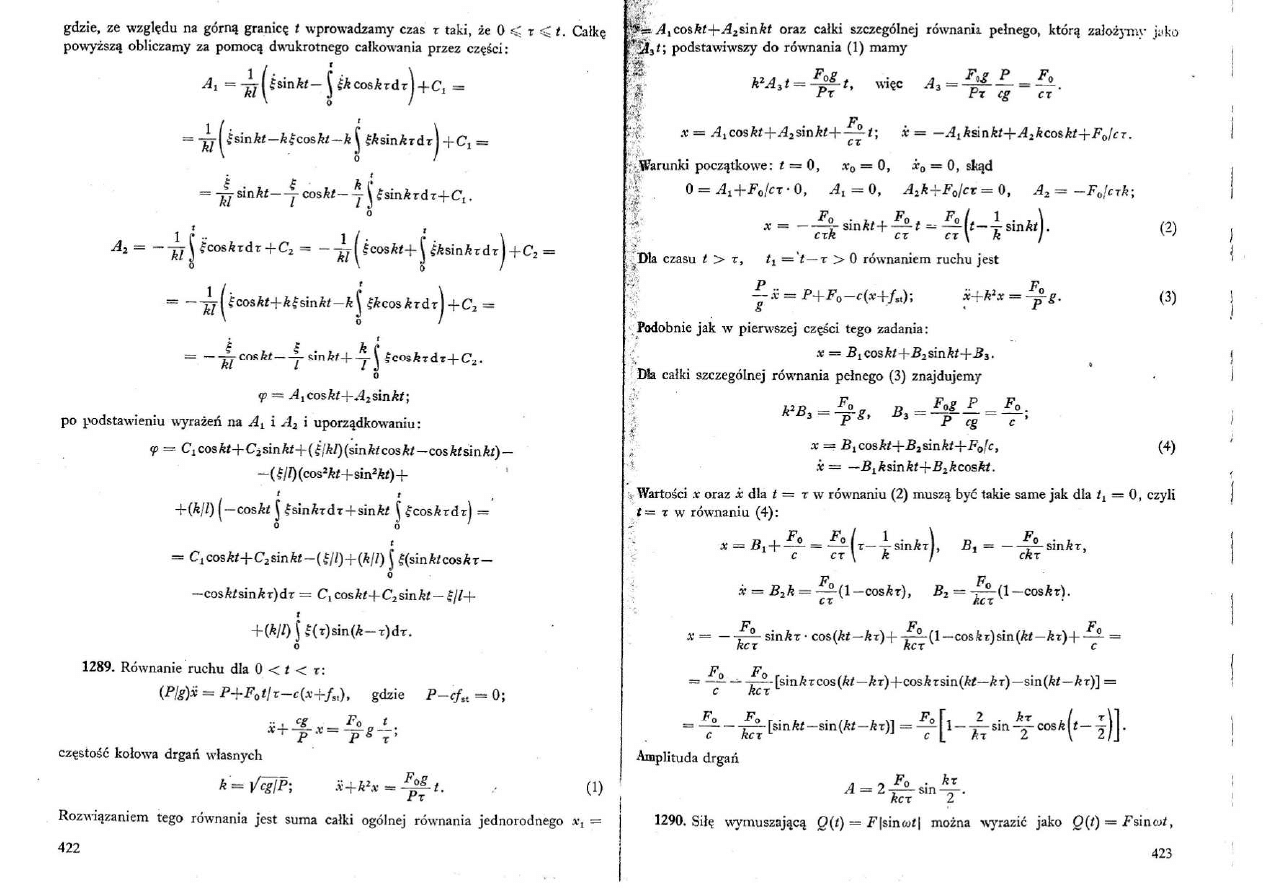 gdzie, ze względu na górną granicę t wprowadzamy czas τ taki, że 0 ⩽ τ ⩽ t. Całkę
powyższą obliczamy za pomocą dwukrotnego całkowania przez części:
A₁ = 1/(kl) (ξ̇ sin kt − ∫₀ᵗ ξ̇k cos kτ dτ) + C₁ =
= 1/(kl) (ξ̇ sin kt − kξ cos kt − k ∫₀ᵗ ξk sin kτ dτ) + C₁ =
= ξ̇/(kl) sin kt − ξ/l cos kt − k/l ∫₀ᵗ ξ sin kτ dτ + C₁.
A₂ = − 1/(kl) ∫₀ᵗ ξ̈ cos kτ dτ + C₂ = − 1/(kl) (ξ̇ cos kt + ∫₀ᵗ ξ̇k sin kτ dτ) + C₂ =
= − 1/(kl) (ξ̇ cos kt + kξ sin kt − k ∫₀ᵗ ξk cos kτ dτ) + C₂ =
= − ξ̇/(kl) cos kt − ξ/l sin kt + k/l ∫₀ᵗ ξ cos kτ dτ + C₂.
φ = A₁ cos kt + A₂ sin kt;
po podstawieniu wyrażeń na A₁ i A₂ i uporządkowaniu:
φ = C₁ cos kt + C₂ sin kt + (ξ̇/kl)(sin kt cos kt − cos kt sin kt) −
−(ξ/l)(cos²kt + sin²kt) +
+(k/l) (−cos kt ∫₀ᵗ ξ sin kτ dτ + sin kt ∫₀ᵗ ξ cos kτ dτ) =
= C₁ cos kt + C₂ sin kt − (ξ/l) + (k/l) ∫₀ᵗ ξ(sin kt cos kτ −
−cos kt sin kτ)dτ = C₁ cos kt + C₂ sin kt − ξ/l +
+(k/l) ∫₀ᵗ ξ(τ) sin(k−τ)dτ.
1289. Równanie ruchu dla 0 < t < τ:
(P/g)ẍ = P + F₀t/τ − c(x + fₛₜ), gdzie P − cfₛₜ = 0;
ẍ + (cg/P) x = (F₀/P) g (t/τ);
częstość kołowa drgań własnych
k = √(cg/P); ẍ + k²x = (F₀g/Pτ) t. (1)
Rozwiązaniem tego równania jest suma całki ogólnej równania jednorodnego x₁ =
422
= A₁ cos kt + A₂ sin kt oraz całki szczególnej równania pełnego, którą założymy jako
A₃t; podstawiwszy do równania (1) mamy
k²A₃t = (F₀g/Pτ) t, więc A₃ = (F₀g/Pτ)(P/cg) = F₀/cτ.
x = A₁ cos kt + A₂ sin kt + (F₀/cτ) t; ẋ = −A₁k sin kt + A₂k cos kt + F₀/cτ.
Warunki początkowe: t = 0, x₀ = 0, ẋ₀ = 0, skąd
0 = A₁ + F₀/cτ · 0, A₁ = 0, A₂k + F₀/cτ = 0, A₂ = −F₀/cτk;
x = − (F₀/cτk) sin kt + (F₀/cτ) t = (F₀/cτ) (t − (1/k) sin kt). (2)
Dla czasu t > τ, t₁ = t − τ > 0 równaniem ruchu jest
(P/g) ẍ = P + F₀ − c(x + fₛₜ); ẍ + k²x = (F₀/P) g. (3)
Podobnie jak w pierwszej części tego zadania:
x = B₁ cos kt + B₂ sin kt + B₃.
Dla całki szczególnej równania pełnego (3) znajdujemy
k²B₃ = (F₀/P) g, B₃ = (F₀g/P)(P/cg) = F₀/c;
x = B₁ cos kt + B₂ sin kt + F₀/c, (4)
ẋ = −B₁k sin kt + B₂k cos kt.
Wartości x oraz ẋ dla t = τ w równaniu (2) muszą być takie same jak dla t₁ = 0, czyli
t = τ w równaniu (4):
x = B₁ + F₀/c = (F₀/cτ) (τ − (1/k) sin kτ), B₁ = − (F₀/ckτ) sin kτ,
ẋ = B₂k = (F₀/cτ)(1 − cos kτ), B₂ = (F₀/kcτ)(1 − cos kτ).
x = − (F₀/kcτ) sin kτ · cos(kt − kτ) + (F₀/kcτ)(1 − cos kτ) sin(kt − kτ) + F₀/c =
= F₀/c − (F₀/kcτ) [sin kτ cos(kt − kτ) + cos kτ sin(kt − kτ) − sin(kt − kτ)] =
= F₀/c − (F₀/kcτ) [sin kt − sin(kt − kτ)] = (F₀/c) [1 − (2/kτ) sin (kτ/2) cos k(t − τ/2)].
Amplituda drgań
A = 2 (F₀/kcτ) sin (kτ/2).
1290. Siłę wymuszającą Q(t) = F|sin ωt| można wyrazić jako Q(t) = F sin ωt,
423